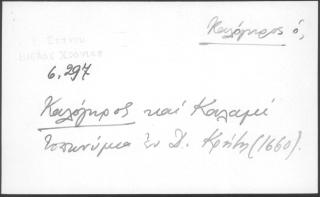 Καλόγηρος ὁ,
6, 297
Καλόγηρος καί Καλαμί
τοπωνύμια ἐν Δ. Κρήτῃ (1660).